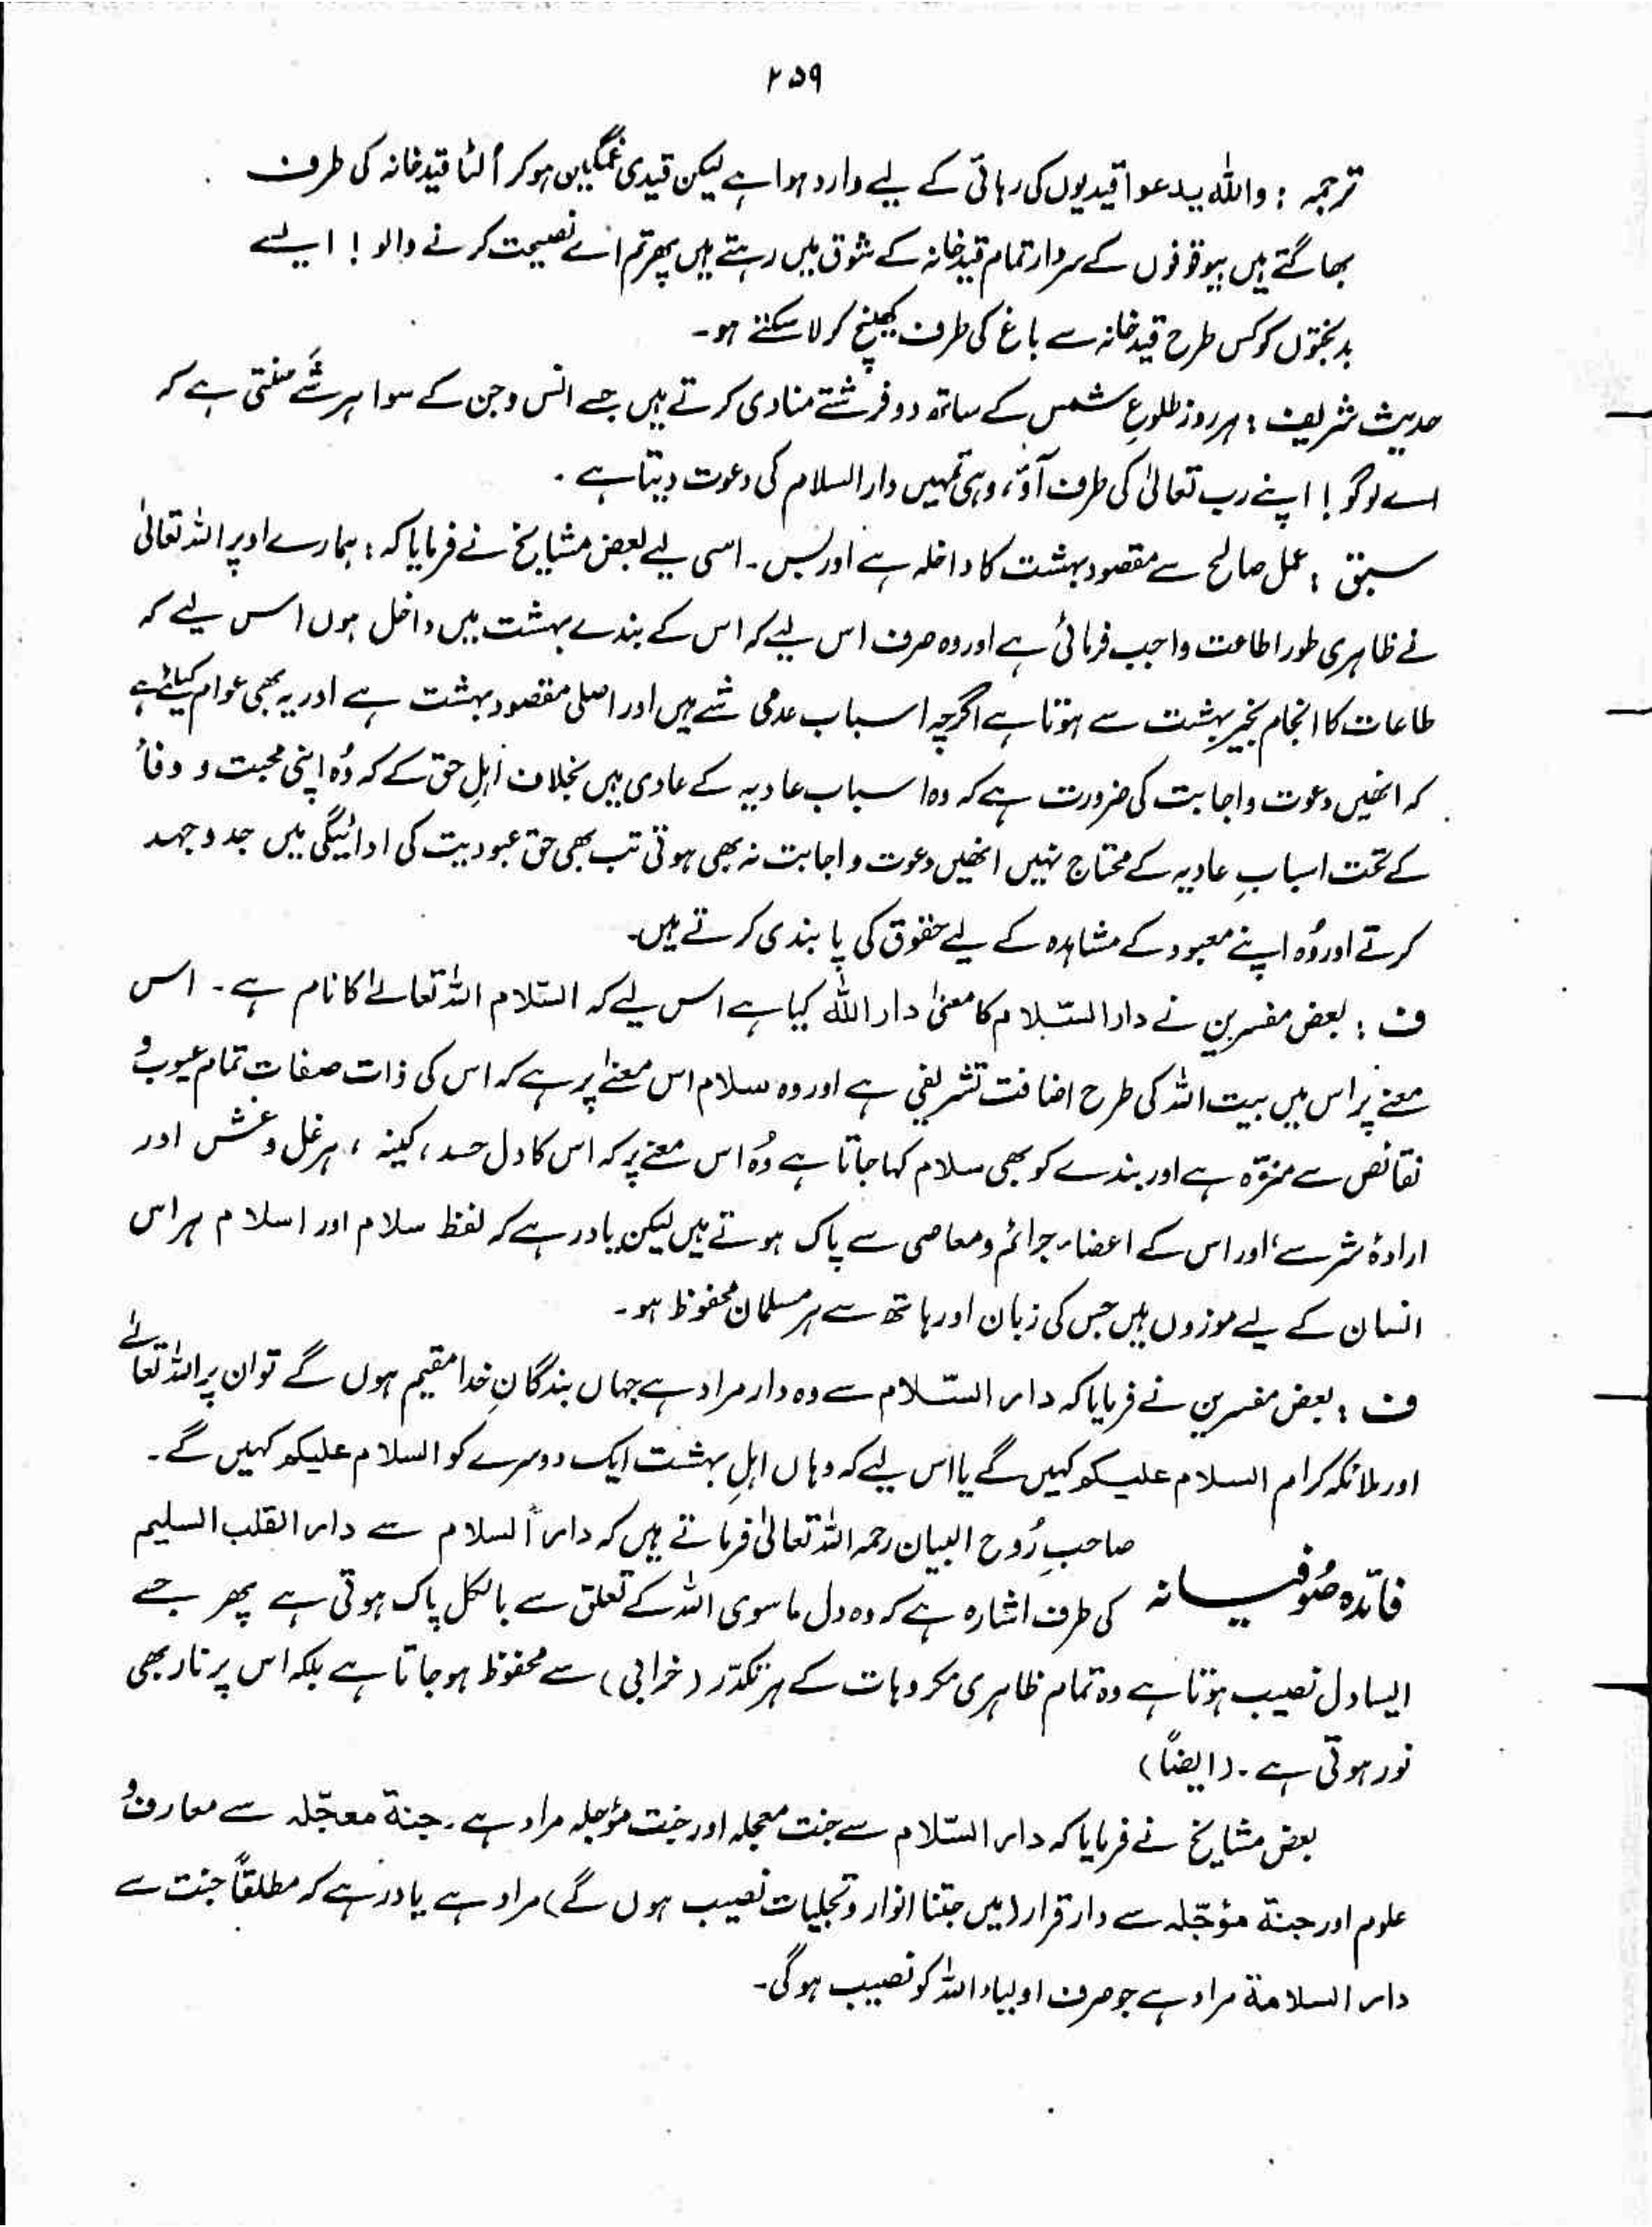 ۲۵۹
ترجمہ : واللہ یدعوا قیدیوں کی رہائی کے لیے وارد ہوا ہے لیکن قیدی غمگین ہو کر اُلٹا قیدخانہ کی طرف
بھاگتے ہیں بیوقوفوں کے سردار تمام قیدخانہ کے شوق میں رہتے ہیں پھر تم اے نصیحت کرنے والو ! ایسے
بدبختوں کو کس طرح قیدخانہ سے باغ کی طرف کھینچ کر لا سکتے ہو۔
حدیث شریف : ہر روز طلوعِ شمس کے ساتھ دو فرشتے منادی کرتے ہیں جسے انس وجن کے سوا ہر شَے سنتی ہے کہ
اے لوگو ! اپنے رب تعالیٰ کی طرف آؤ، وہی تمہیں دارالسلام کی دعوت دیتا ہے ۔
سبق : عمل صالح سے مقصود بہشت کا داخلہ ہے اور بس۔ اسی لیے بعض مشایخ نے فرمایا کہ : ہمارے اوپر اللہ تعالیٰ
نے ظاہری طور اطاعت واجب فرمائی ہے اور وہ صرف اس لیے کہ اس کے بندے بہشت میں داخل ہوں اس لیے کہ
طاعات کا انجام بخیر بہشت سے ہوتا ہے اگرچہ اسباب عدمی شے ہیں اور اصلی مقصود بہشت ہے اور یہ بھی عوام کیلئے ہے
کہ انھیں دعوت و اجابت کی ضرورت ہے کہ وہ اسباب عادیہ کے عادی ہیں بخلاف اہلِ حق کے کہ وُہ اپنی محبت و وفأ
کے تحت اسبابِ عادیہ کے محتاج نہیں انھیں دعوت و اجابت نہ بھی ہوتی تب بھی حق عبودیت کی ادائیگی میں جد و جہد
کرتے اور وُہ اپنے معبود کے مشاہدہ کے لیے حقوق کی پابندی کرتے ہیں۔
ف : بعض مفسرین نے دارالسّلام کا معنیٰ دار اللہ کیا ہے اس لیے کہ السّلام اللہ تعالےٰ کا نام ہے ۔ اس
معنے پر اس میں بیت اللہ کی طرح اضافت تشریفی ہے اور وہ سلام اس معنےٰ پر ہے کہ اس کی ذات صفات تمام عیوب و
نقائص سے منزّہ ہے اور بندے کو بھی سلام کہا جاتا ہے وُہ اس معنے پر کہ اس کا دل حسد، کینہ ، ہر غل و غش اور
ارادۂ شر سے، اور اس کے اعضاء جرائم و معاصی سے پاک ہوتے ہیں لیکن یاد رہے کہ لفظ سلام اور اسلام ہر اس
انسان کے لیے موزوں ہیں جس کی زبان اور ہاتھ سے ہر مسلمان محفوظ ہو۔
ف : بعض مفسرین نے فرمایا کہ دار السّلام سے وہ دار مراد ہے جہاں بندگانِ خدا مقیم ہوں گے تو ان پر اللہ تعالےٰ
اور ملائکہ کرام السلام علیکم کہیں گے یا اس لیے کہ وہاں اہلِ بہشت ایک دوسرے کو السلام علیکم کہیں گے ۔
صاحبِ رُوح البیان رحمہ اللہ تعالیٰ فرماتے ہیں کہ دار السلام سے دار القلب السلیم
فائدہ صُوفیانہ کی طرف اشارہ ہے کہ وہ دل ماسوی اللہ کے تعلق سے بالکل پاک ہوتی ہے پھر جسے
ایسا دل نصیب ہوتا ہے وہ تمام ظاہری مکروہات کے ہر تکدّر (خرابی) سے محفوظ ہو جاتا ہے بلکہ اس پر نار بھی
نور ہوتی ہے ۔ (ایضاً)
بعض مشایخ نے فرمایا کہ دار السّلام سے جنت معجلہ اور جنت مؤجلہ مراد ہے ۔ جنۃ معجّلہ سے معارف و
علوم اور جنۃ مؤجّلہ سے دار قرار (میں جتنا انوار و تجلیات نصیب ہوں گے) مراد ہے یاد رہے کہ مطلقاً جنت سے
دار السلامۃ مراد ہے جو صرف اولیاء اللہ کو نصیب ہوگی۔